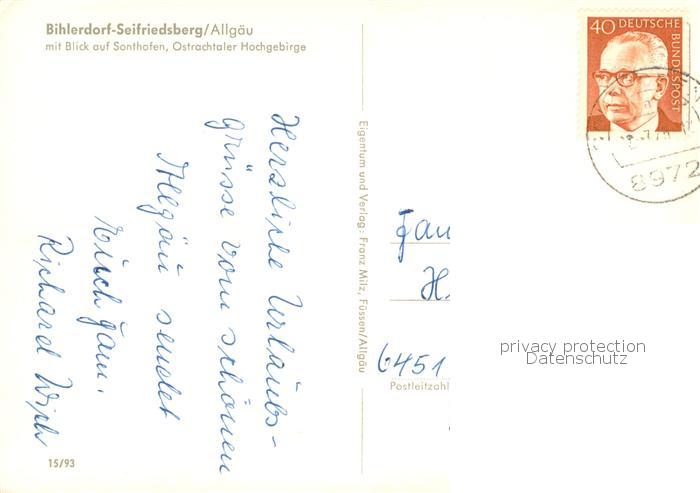 Bihlerdorf-Seifriedsberg/Allgäu
mit Blick auf Sonthofen, Ostrachtaler Hochgebirge
Herzliche Urlaubs-
grüsse vom schönen
Allgäu sendet
Euch Fam.
Richard
15/93
Eigentum und Verlag: Franz Milz, Füssen/Allgäu
40 DEUTSCHE BUNDESPOST
8972
Fam
H.
6451
Postleitzahl
privacy protection
Datenschutz